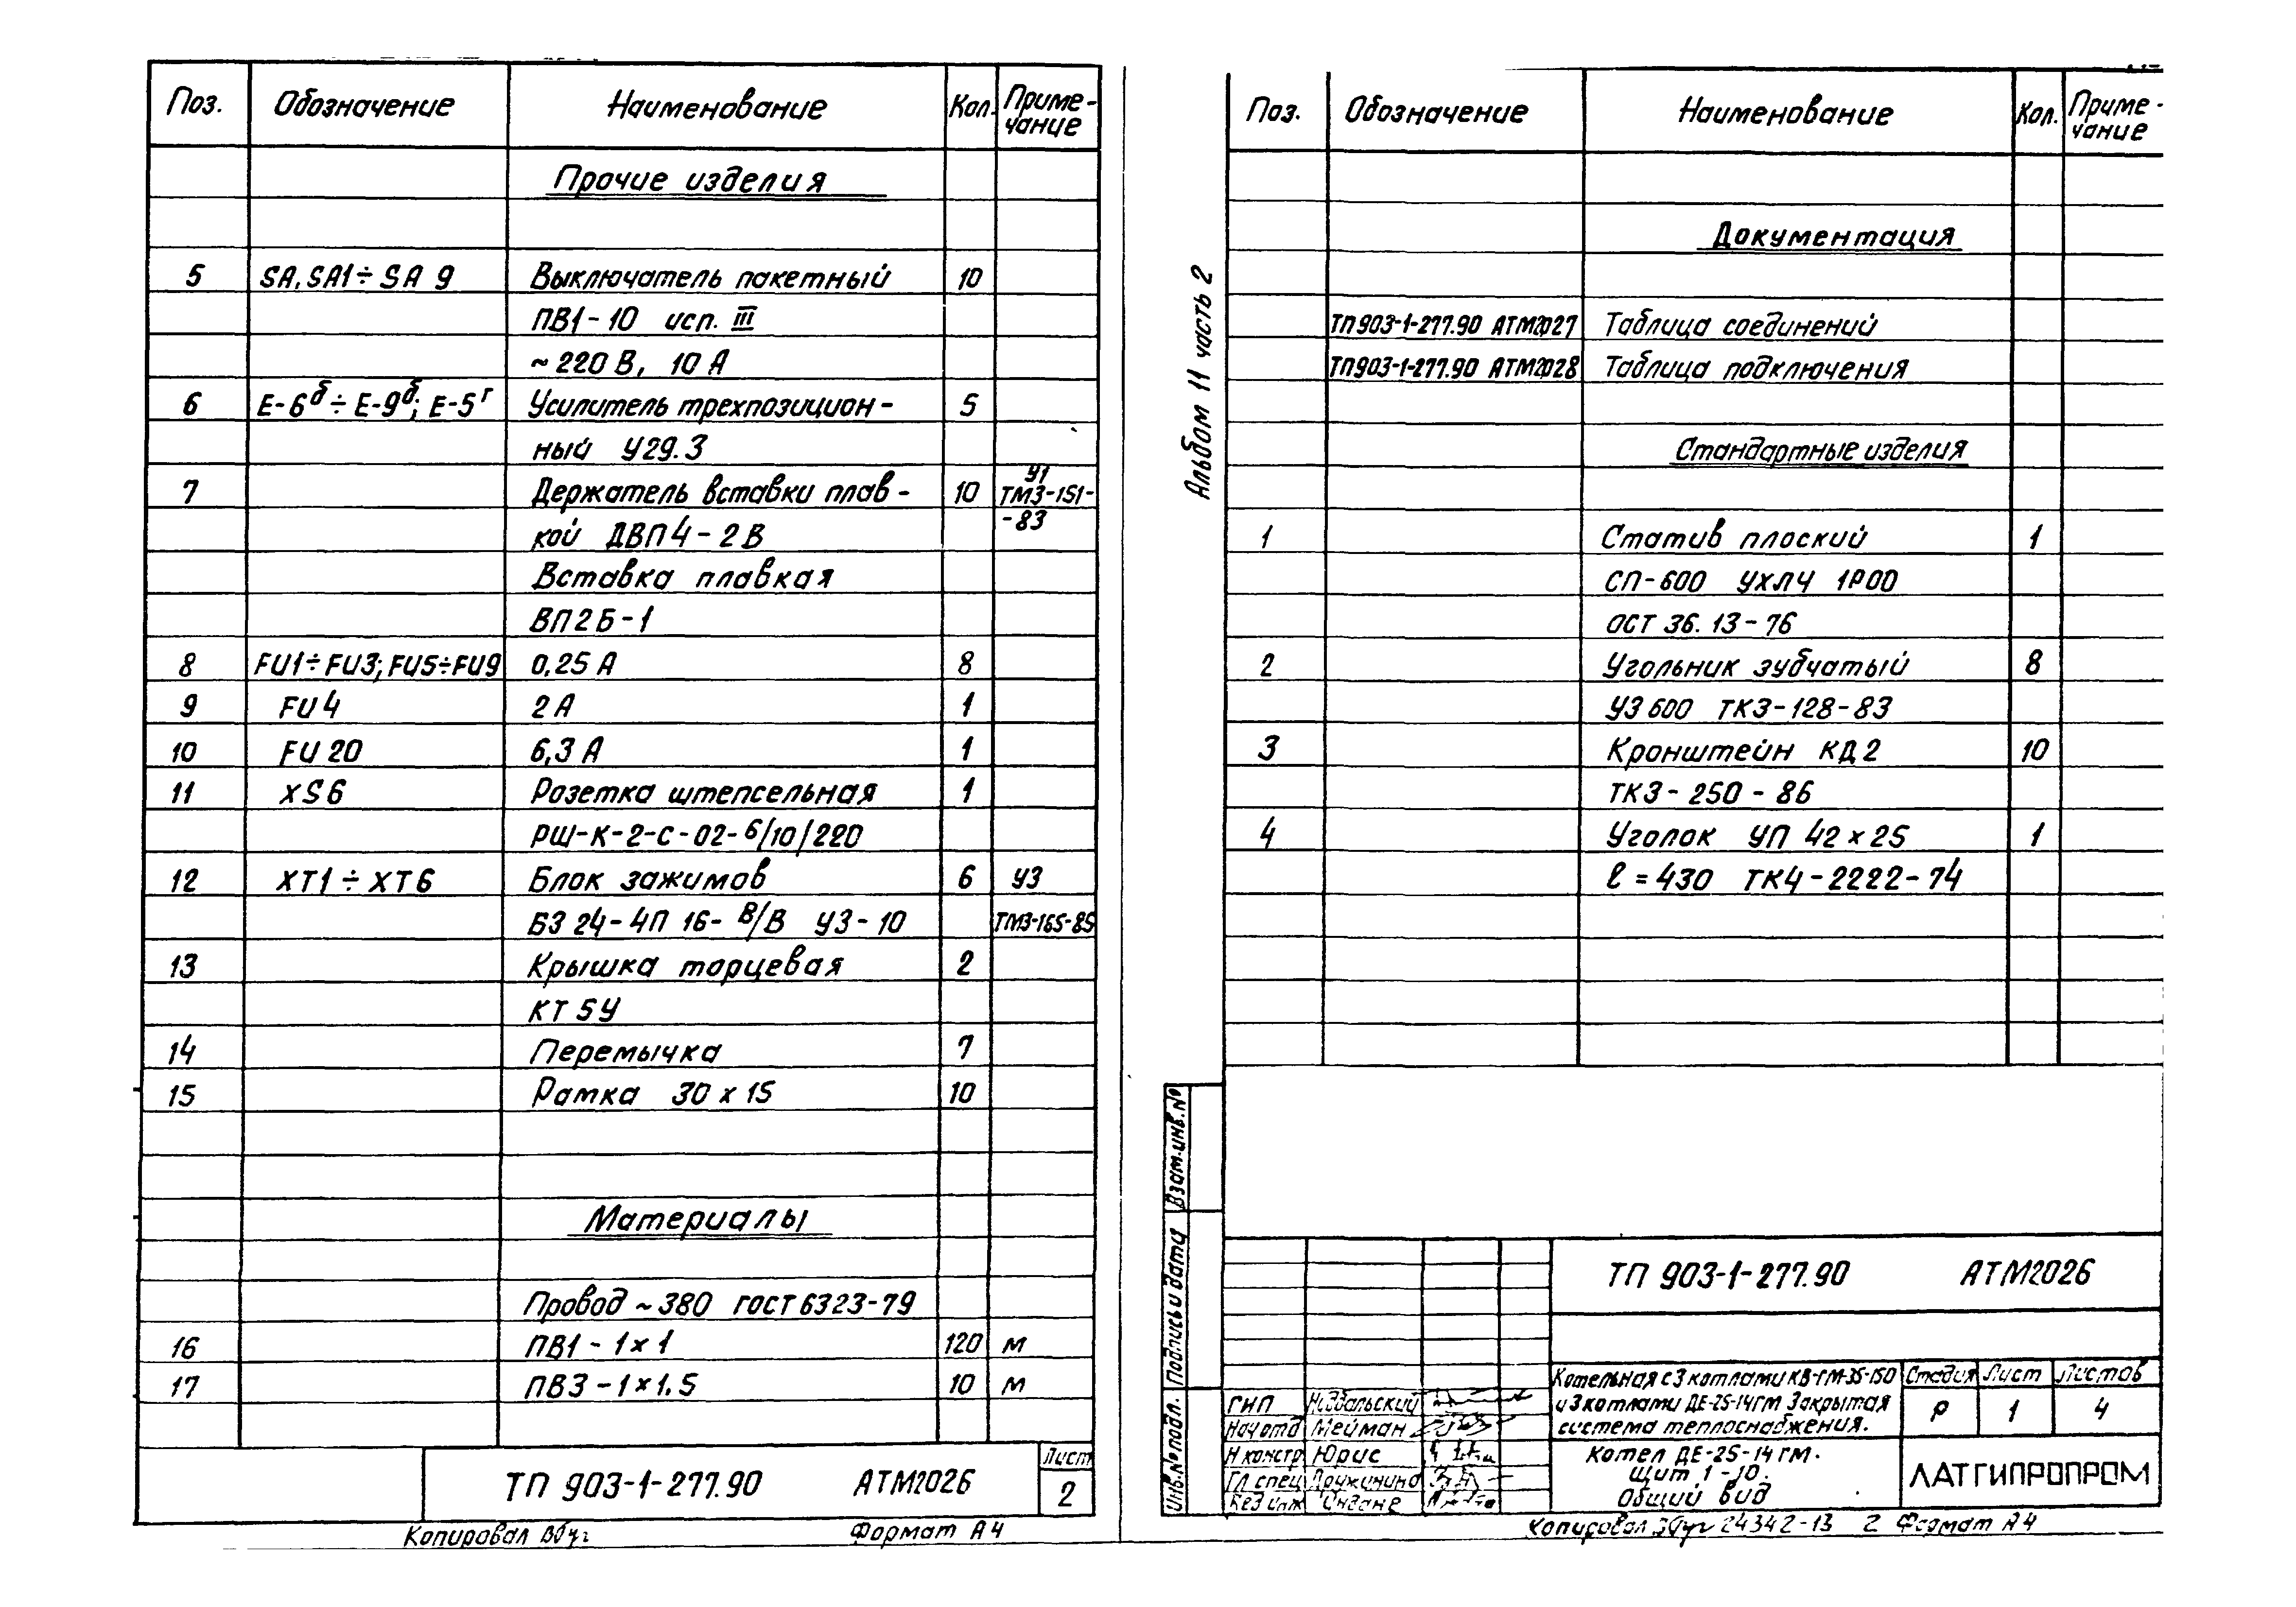 Поз. Обозначение Наименование Кол. Приме-
чание
Прочие изделия
5 SA, SA1÷SA 9 Выключатель пакетный 10
ПВ1-10 исп. III
~220 В, 10 А
6 Е-6б÷Е-9б; Е-5г Усилитель трехпозицион- 5
ный У29.3
7 Держатель вставки плав- 10 У1 ТМ3-151-
кой ДВП4-2В -83
Вставка плавкая
ВП2Б-1
8 FU1÷FU3; FU5÷FU9 0,25 А 8
9 FU4 2 А 1
10 FU20 6,3 А 1
11 XS6 Розетка штепсельная 1
РШ-К-2-С-02-6/10/220
12 XT1÷XT6 Блок зажимов 6 У3
БЗ 24-4П 16-В/В У3-10 ТМ3-165-85
13 Крышка торцевая 2
КТ 5У
14 Перемычка 7
15 Рамка 30х15 10
Материалы
Провод ~380 ГОСТ 6323-79
16 ПВ1-1х1 120 м
17 ПВ3-1х1.5 10 м
ТП 903-1-277.90 АТМ2026
Лист
2
Копировал Формат А4
Альбом 11 часть 2
Поз. Обозначение Наименование Кол. Приме-
чание
Документация
ТП903-1-277.90 АТМ2027 Таблица соединений
ТП903-1-277.90 АТМ2028 Таблица подключения
Стандартные изделия
1 Статив плоский 1
СП-600 УХЛ4 1Р00
ОСТ 36.13-76
2 Угольник зубчатый 8
УЗ 600 ТК3-128-83
3 Кронштейн КД2 10
ТК3-250-86
4 Уголок УП 42х25 1
l=430 ТК4-2222-74
Взам.инв.№
Подпись и дата
Инв.№ подл.
ТП 903-1-277.90 АТМ2026
Котельная с 3 котлами КВ-ГМ-35-150
и 3 котлами ДЕ-25-14ГМ Закрытая
система теплоснабжения.
Стадия Лист Листов
Р 1 4
ГИП
Нач отд Мейман
Н констр Юрис
Гл спец Дружинина
Вед инж
Котел ДЕ-25-14 ГМ.
Щит 1-10.
Общий вид
ЛАТГИПРОПРОМ
Копировал 24342-13 2 Формат А4